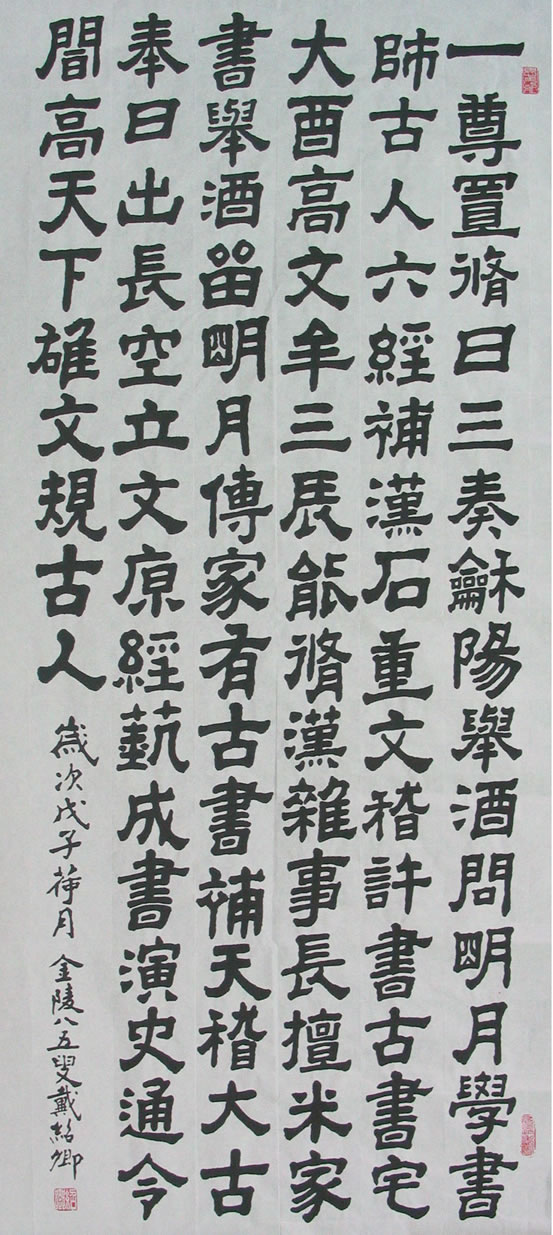 一尊置脩日三奏龢陽舉酒問明月學書
師古人六經補漢石重文稽許書古書宅
大酉高文牟三辰能脩漢雜事長擅米家
書舉酒留明月傳家有古書補天稽大古
奉日出長空立文原經藝成書演史通今
間高天下雄文規古人
歲次戊子荷月 金陵八五叟戴紹卿